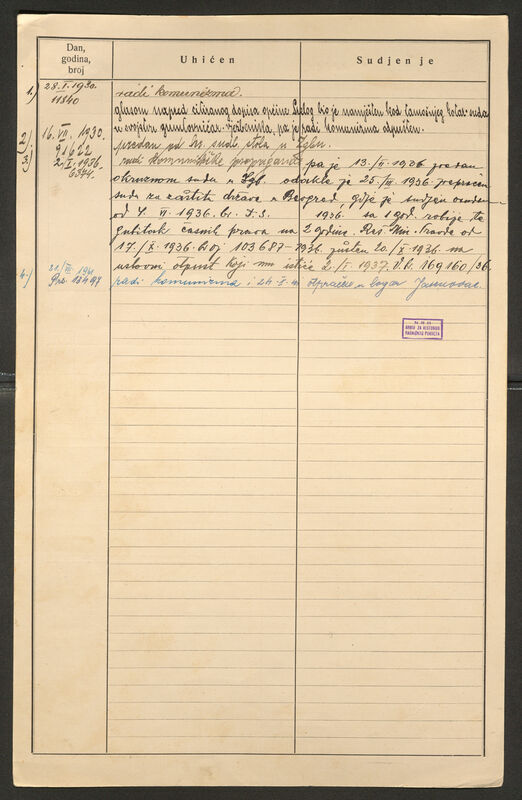 Dan,
godina,
broj
Uhićen
Sudjenje
1.) 28.I.1930. radi komunizma.
11840
glasom napred citiranog dopisa općine bio je namješten kod kotar. suda
u svojstvu gruntovničar. pa je radi komunizma otpušten.
2) 16. VII. 1930. predan po drž. sudi stola u Zgbu.
91622
3) 2/I. 1936. radi komunističke propagande pa je 13./II 1936 predan
6344.
okružnom sudu u Zgb. odakle je 25/III 1936 prepraćen
sudu za zaštitu države u Beograd, gdje je sudjen osudom
od 4. VI. 1936. br. 1936. sa 1 god. robije te
gubitak časnih prava na 2 godine. Reš. Min. Pravde od
17./X. 1936. broj 103687-1936. pušten 20/X 1936 na
uslovni otpust koji mu ističe 2/I. 1937. V.b. 169160/36
4.) 31/VII 1941
Prs. 13498 radi komunizma i 24-8-41 otpraćen u logor Jasenovac.
N R H
ARHIV ZA HISTORIJU
RADNIČKOG POKRETA